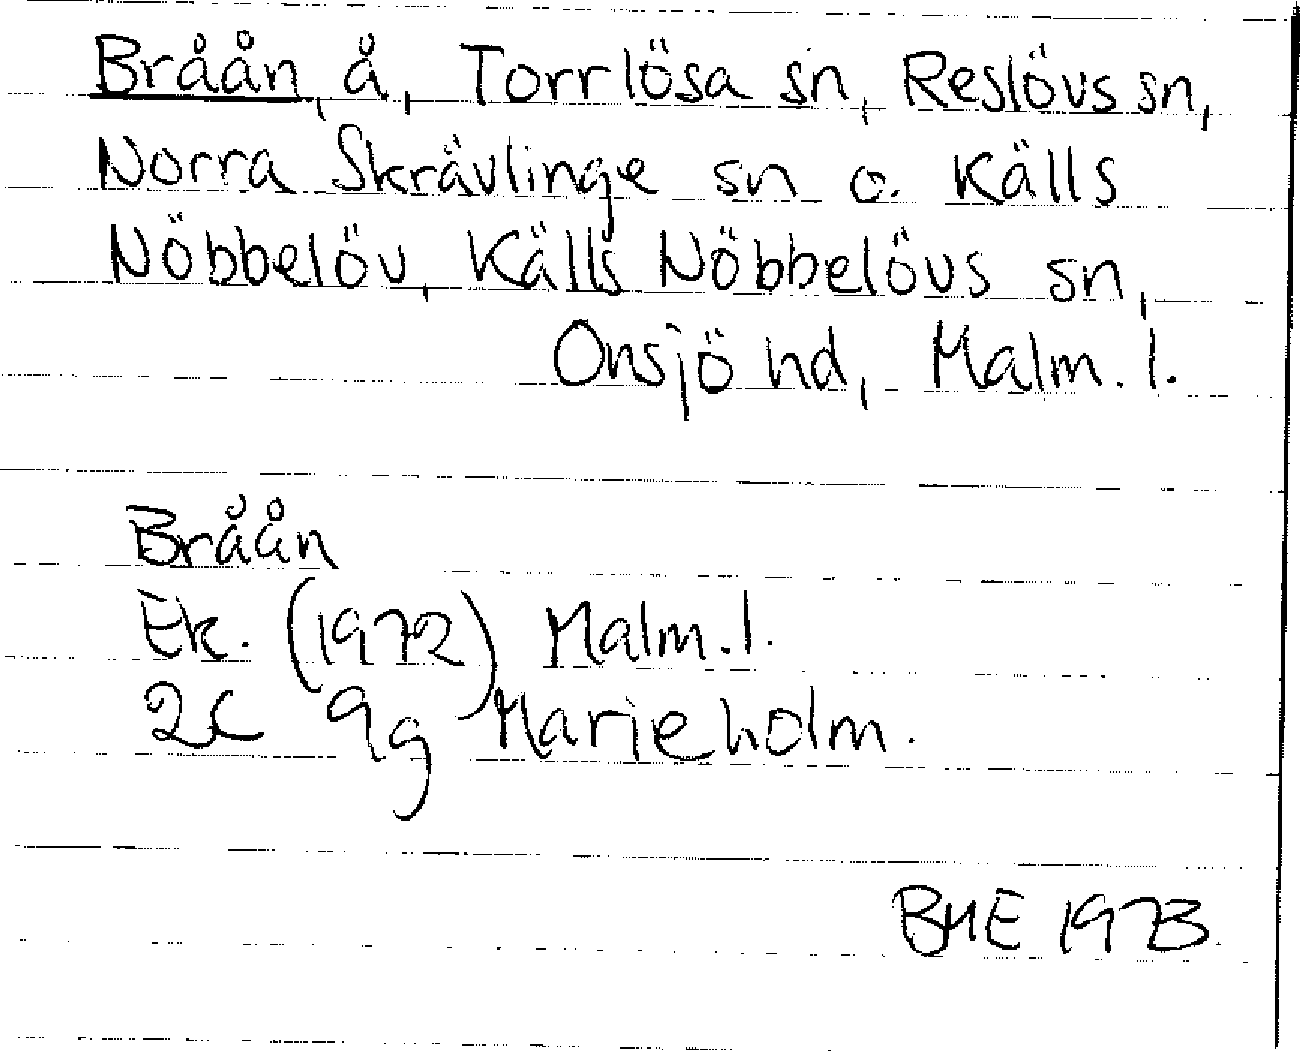 Bråån, å, Torrlösa sn, Reslövs sn,
Norra Skrävlinge sn o. Källs
Nöbbelöv, Källs Nöbbelövs sn,
Onsjö hd, Malm. l.
Bråån
Ek. (1972) Malm. l.
2C 9g Marieholm.
BME 1973